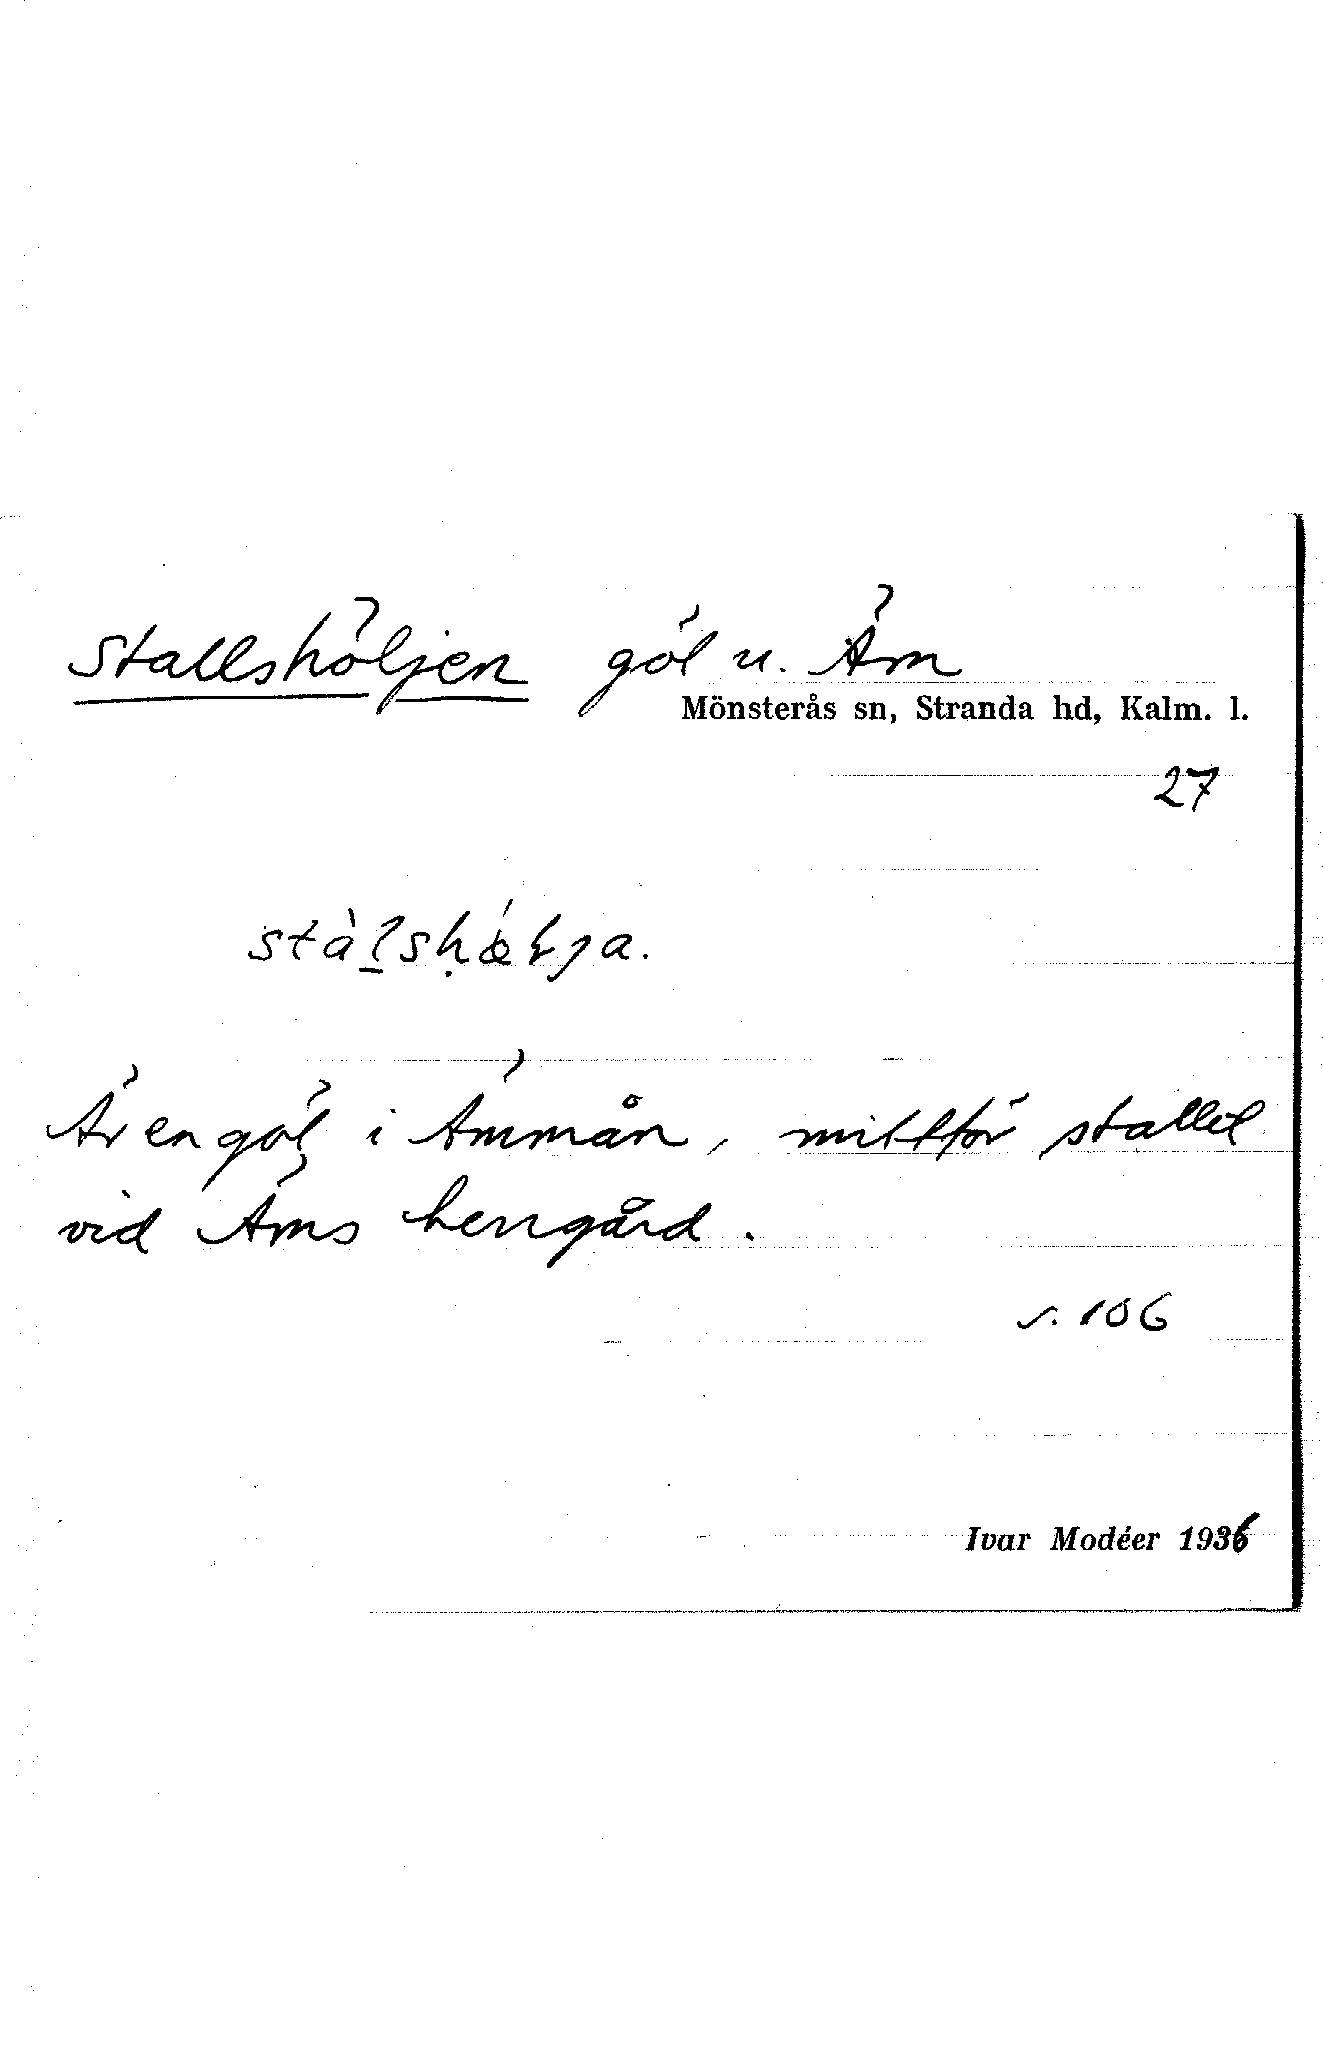 Stallshöljen göl u. Äm
Mönsterås sn, Stranda hd, Kalm. l.
27
Är en göl i Ämmån, mittför stallet
vid Äms herrgård.
s. 106
Ivar Modéer 1936